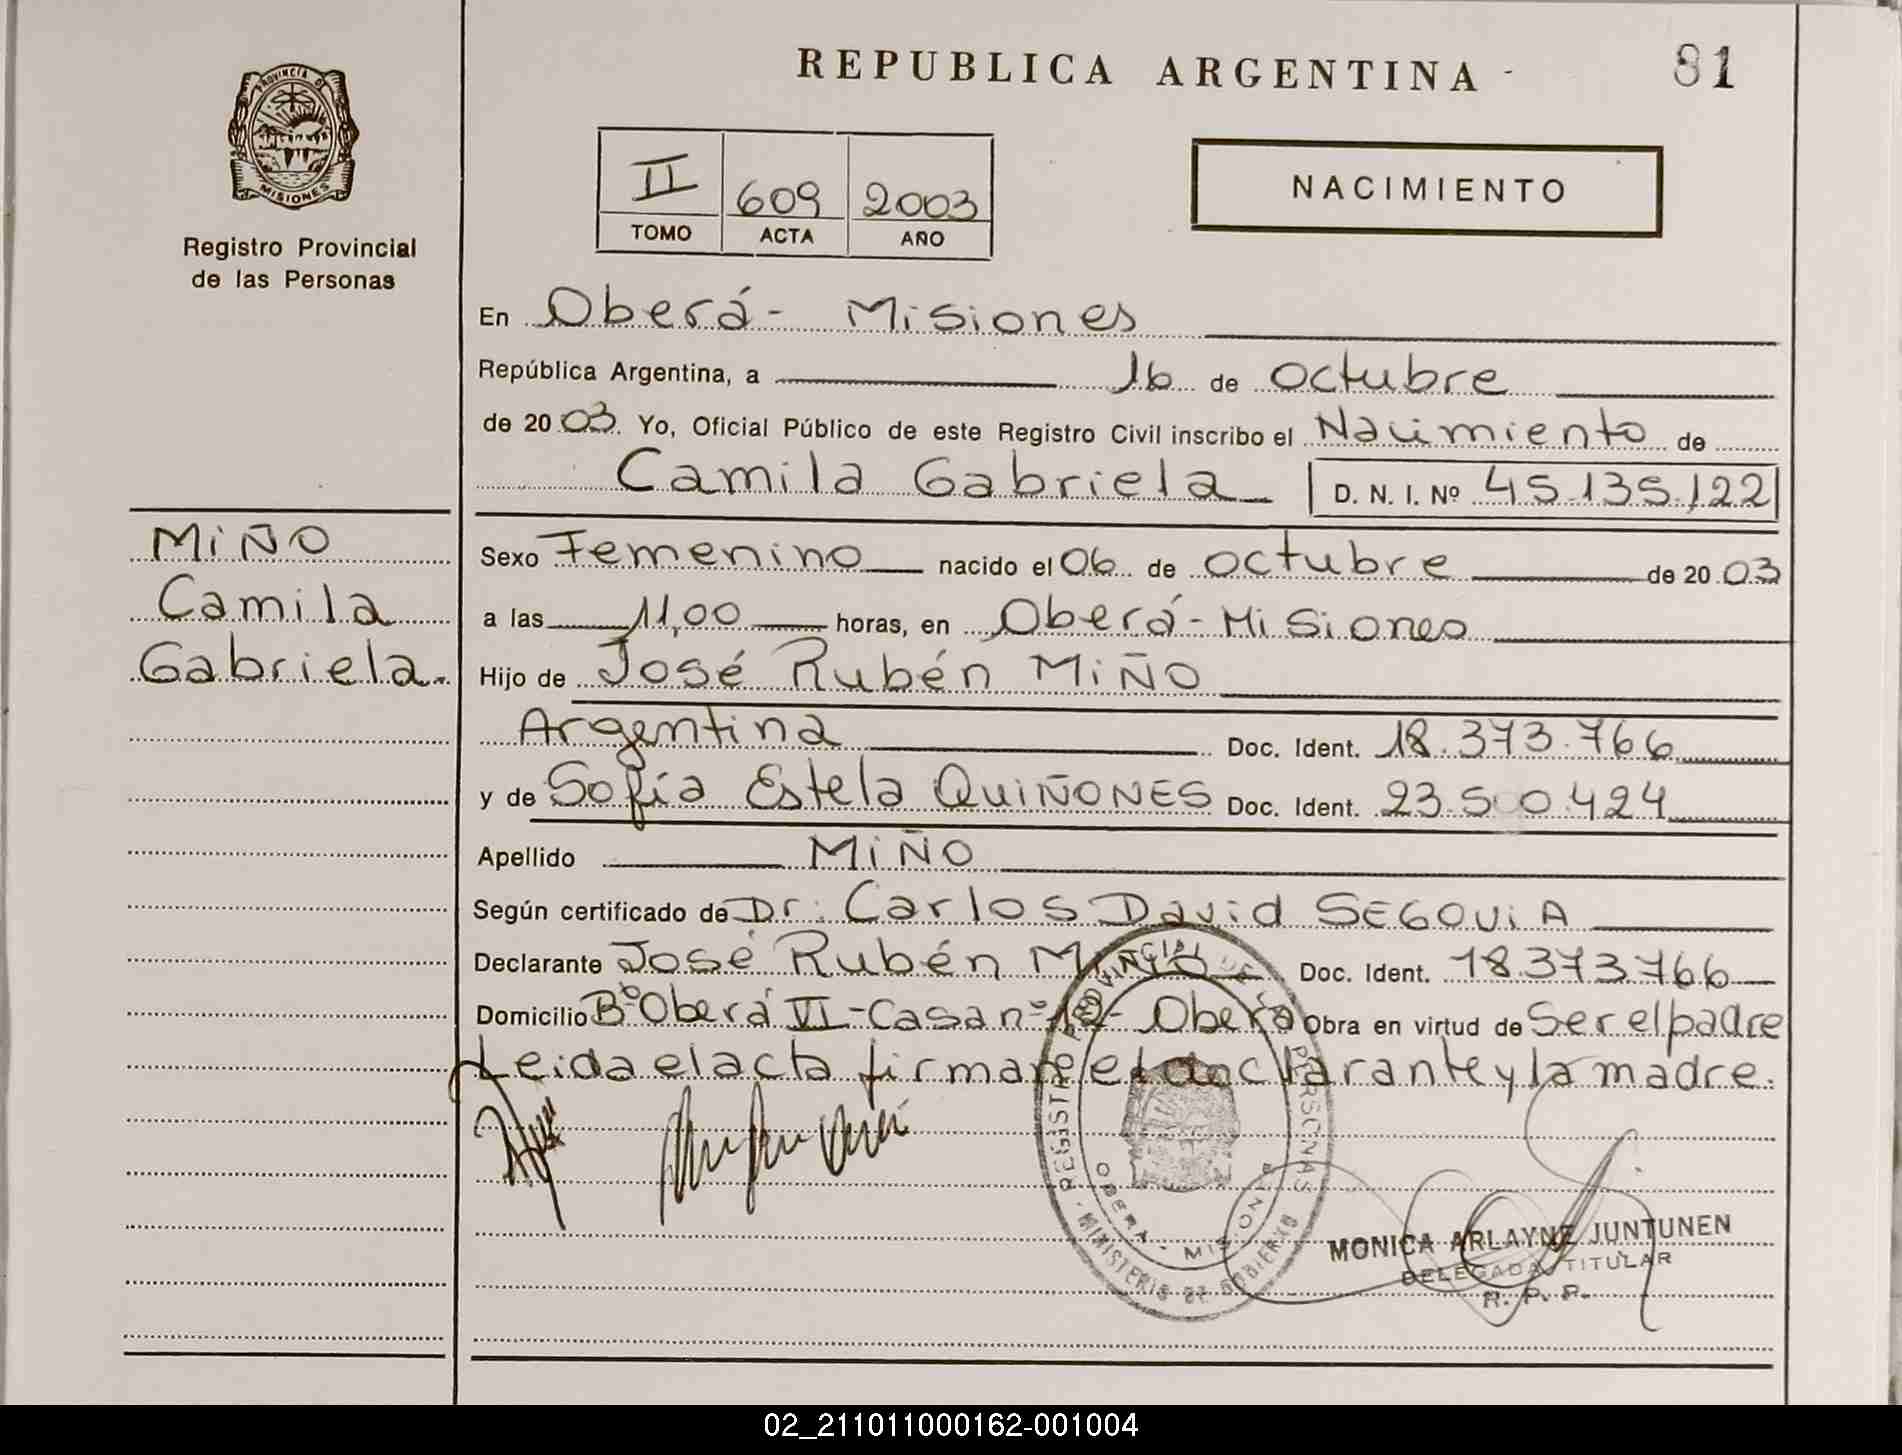 REPUBLICA ARGENTINA
81
PROVINCIA DE
MISIONES
Registro Provincial
de las Personas
II 609 2003
TOMO ACTA AÑO
NACIMIENTO
En Oberá- Misiones
República Argentina, a 16 de octubre
de 2003. Yo, Oficial Público de este Registro Civil inscribo el Nacimiento de
Camila Gabriela D. N. I. Nº 45.135.122
MIÑO
Camila
Gabriela.
Sexo Femenino nacido el 06 de octubre de 2003
a las 11,00 horas, en Oberá-Misiones
Hijo de José Rubén MIÑO
Argentina Doc. Ident. 18.373.766
y de Sofía Estela QUIÑONES Doc. Ident. 23.500.424
Apellido MIÑO
Según certificado de Dr. Carlos David SEGOVIA
Declarante José Rubén MIÑO Doc. Ident. 18.373.766
Domicilio Bº Oberá VI-Casa nº - Oberá Obra en virtud de Ser el padre
Leida el acta firman el declarante y la madre.
REGISTRO PROVINCIAL DE LAS PERSONAS
OBERA - MISIONES
MINISTERIO DE GOBIERNO
MONICA ARLAYNE JUNTUNEN
DELEGADA TITULAR
R. P. P.
02_211011000162-001004